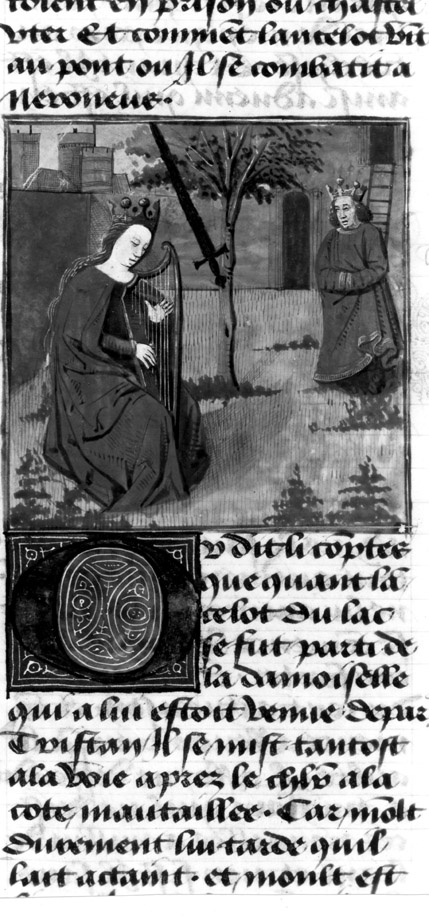 toient en prison ou chastel
vter Et comment lancelot vit
au pont ou Il se combatit a
Neroneus.
Ov dit li comptes
que quant lā
celot du lac
se fut parti de
la damoiselle
qui a lui estoit venue depar
Tristan Il se mist tantost
ala voie aprez le chlr̄ ala
cote mautaillee. Car mōlt
durement lui tarde quil
lait actaint. et moult est